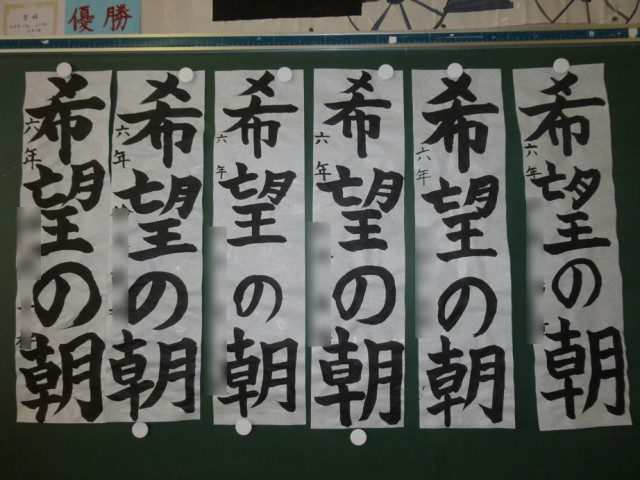 賞状
優勝
希望の朝
六年
希望の朝
六年
希望の朝
六年
希望の朝
六年
希望の朝
六年
希望の朝
六年